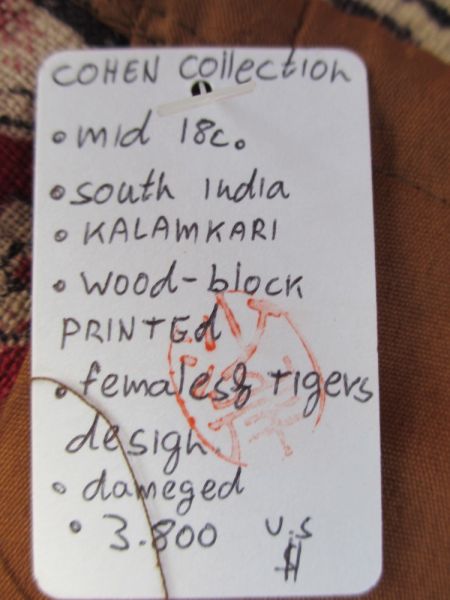 COHEN collection
• mid 18c.
• south india
• KALAMKARI
• wood-block
PRINTEd
• females& tigers
design.
• dameged
• 3.800 U.S
$